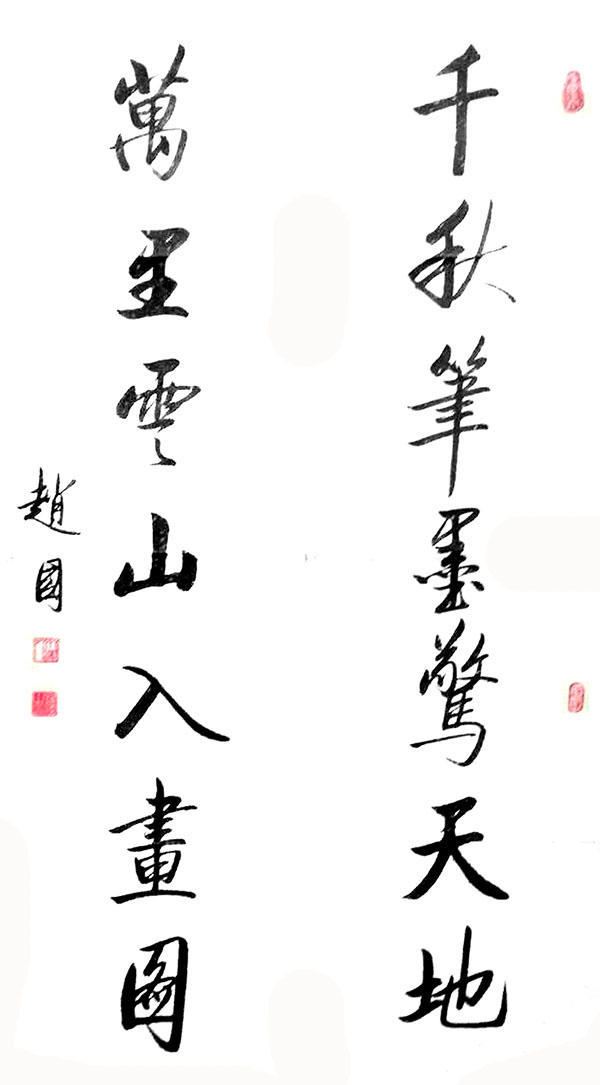 千秋筆墨驚天地
萬里雲山入畫圖
趙國